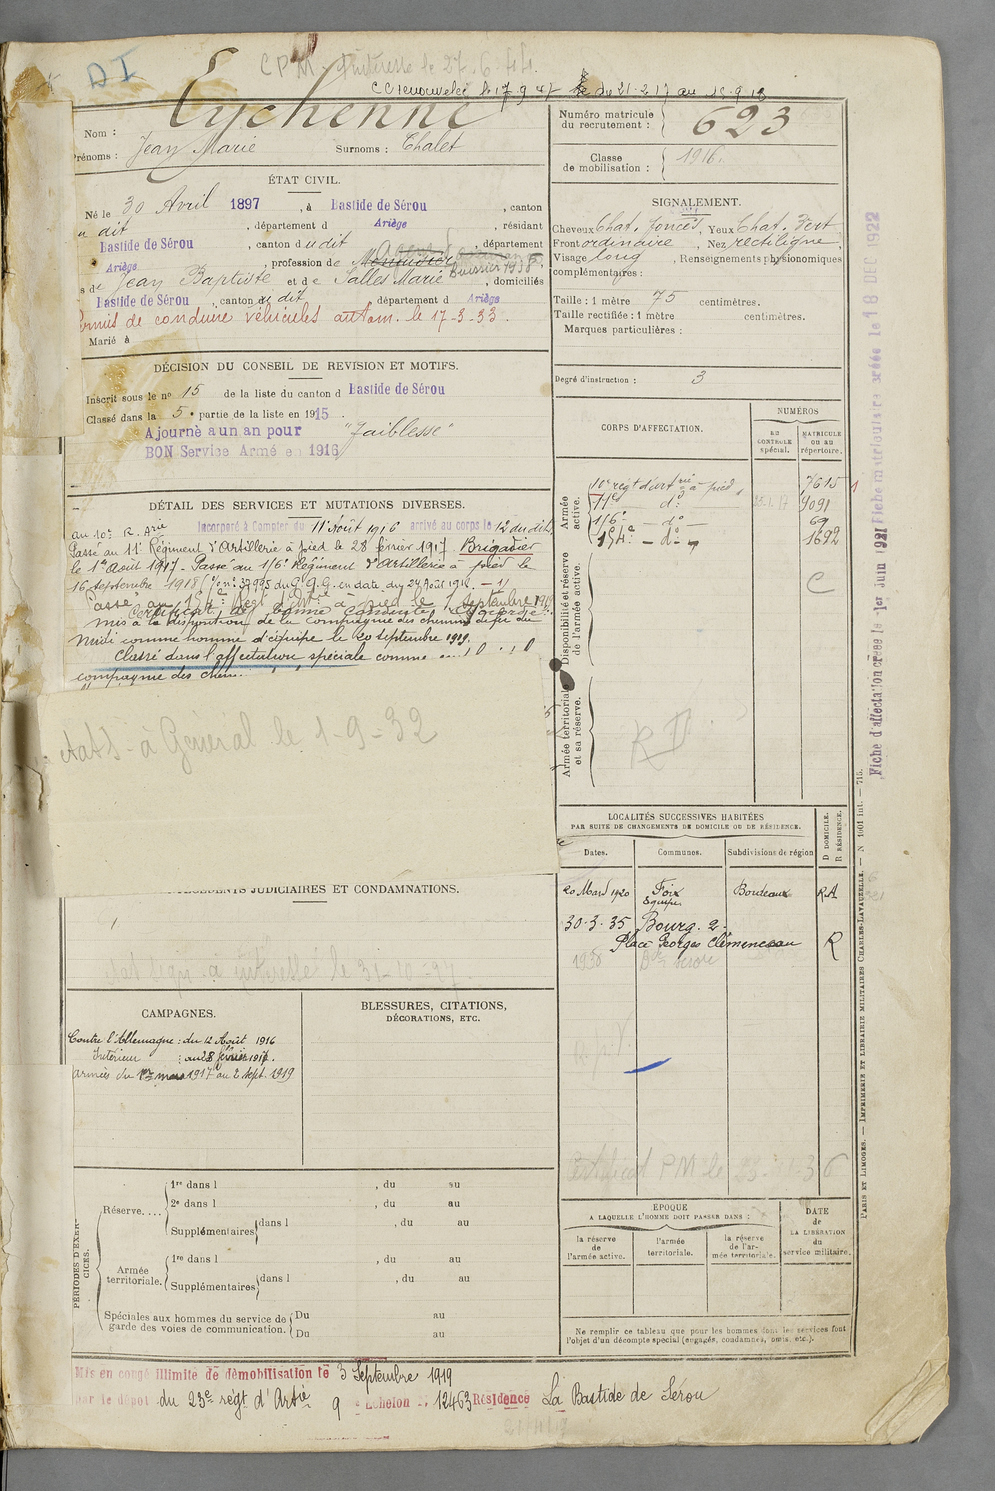 DI
CPM Intéresse le 27.6.44.
CC renouvelée le 17 9 41 du 21.2 17 au 15.9.18
Nom : Eychenne
Prénoms : Jean Marie Surnoms : Chalet
ÉTAT CIVIL.
Né le 30 Avril 1897, à Bastide de Sérou, canton
u dit, département d Ariège, résidant
Bastide de Sérou, canton d u dit, département
Ariège, profession de
Huissier 1938
s de Jean Baptiste et de Salles Marie, domiciliés
Bastide de Sérou, canton du dit département d Ariège
Permis de conduire véhicules autom. le 17-3-33.
Marié à
DÉCISION DU CONSEIL DE REVISION ET MOTIFS.
Inscrit sous le n° 15 de la liste du canton d Bastide de Sérou
Classé dans la 5e partie de la liste en 1915.
Ajourné a un an pour "Faiblesse"
BON Service Armé en 1916
DÉTAIL DES SERVICES ET MUTATIONS DIVERSES.
au 10e R. Arie Incorporé à Compter du 11 Août 1916 arrivé au corps le 12 du dit.
Passé au 11e Régiment d'Artillerie à pied le 28 février 1917. Brigadier
le 1er Août 1917. Passé au 1/6e Régiment d'Artillerie à pied le
16 septembre 1918 du G.Q.G. en date du 24 Août 1918.
Passé au 154e Régt d'Artie à pied le 1 septembre 1919
Certificat de bonne conduite accordé.
mis à la disposition de la compagnie des chemins de fer du
Midi comme homme d'équipe le 20 septembre 1919.
Classé dans l'affectation spéciale comme
compagnie des chem
à Général le 1-9-32
JUDICIAIRES ET CONDAMNATIONS.
le 31-10-
CAMPAGNES.
Contre l'Allemagne : du 12 Août 1916
Intérieur : au 28 février 1917.
Armées du 1er mars 1917 au 2 Sept. 1919
BLESSURES, CITATIONS,
DÉCORATIONS, ETC.
PÉRIODES D'EXERCICES.
Réserve....
1re dans l , du au
2e dans l , du au
Supplémentaires dans l , du au
Armée territoriale.
1re dans l , du au
Supplémentaires dans l , du au
Spéciales aux hommes du service de garde des voies de communication.
Du au
Du au
Mis en congé illimité de démobilisation le 3 Septembre 1919
par le dépôt du 23e régt d'Artie 9e Echelon n° 12463 Résidence La Bastide de Sérou
Numéro matricule du recrutement : 623
Classe de mobilisation : 1916.
SIGNALEMENT.
Cheveux Chat. foncés, Yeux Chat. Vert
Front ordinaire, Nez rectiligne
Visage long, Renseignements physionomiques
complémentaires :
Taille : 1 mètre 75 centimètres.
Taille rectifiée : 1 mètre centimètres.
Marques particulières :
Degré d'instruction : 3
CORPS D'AFFECTATION.
NUMÉROS
AU CONTROLE spécial.
MATRICULE ou au répertoire.
Armée active.
10e régt d'artrie à pied 7615
11e do 4091
1/6e do 69
154e do 1692
C
Disponibilité et réserve de l'armée active.
Armée territoriale et sa réserve.
LOCALITÉS SUCCESSIVES HABITÉES
PAR SUITE DE CHANGEMENTS DE DOMICILE OU DE RÉSIDENCE.
Dates. Communes. Subdivisions de région
D DOMICILE. R RÉSIDENCE.
20 Mars 1920 Foix Bordeaux R.A.
30-3-35 Bourg. 2.
Place Georges Clémenceau R
1938
Certificat PM le
ÉPOQUE
A LAQUELLE L'HOMME DOIT PASSER DANS :
la réserve de l'armée active.
l'armée territoriale.
la réserve de l'armée territoriale.
DATE de LA LIBÉRATION du service militaire.
Ne remplir ce tableau que pour les hommes dont les services font
l'objet d'un décompte spécial (engagés, condamnés, omis, etc.).
PARIS ET LIMOGES. — IMPRIMERIE ET LIBRAIRIE MILITAIRES CHARLES-LAVAUZELLE. — N 1001 int. — 715.
Fiche d'affectation créée le 1er Juin 1921 Fiche matriculaire créée le 18 DEC 1922